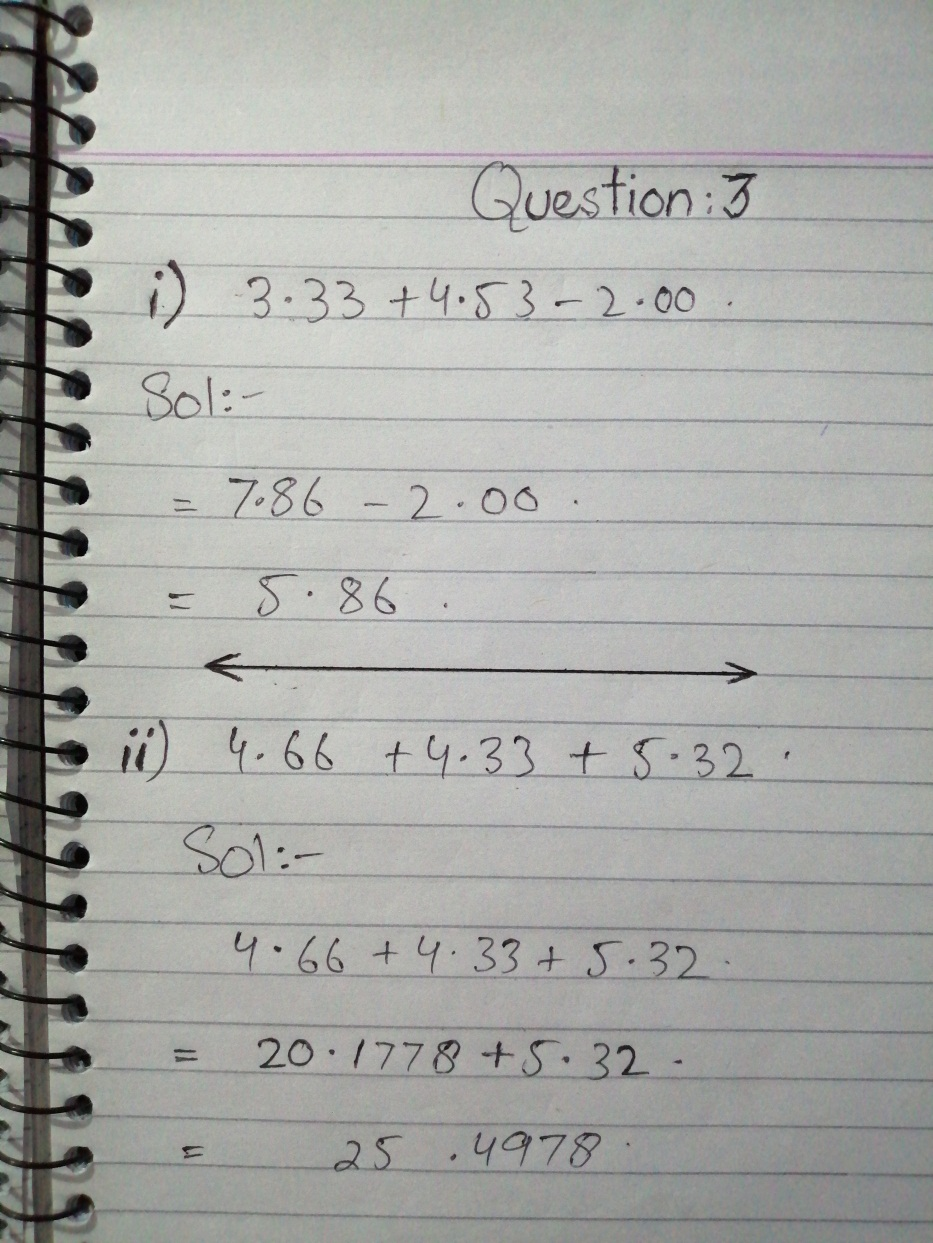 Question: 3
i) 3.33 + 4.53 - 2.00 .
Sol:-
= 7.86 - 2.00 .
= 5.86 .
ii) 4.66 + 4.33 + 5.32 .
Sol:-
4.66 + 4.33 + 5.32 .
= 20.1778 + 5.32 .
= 25 .4978 .